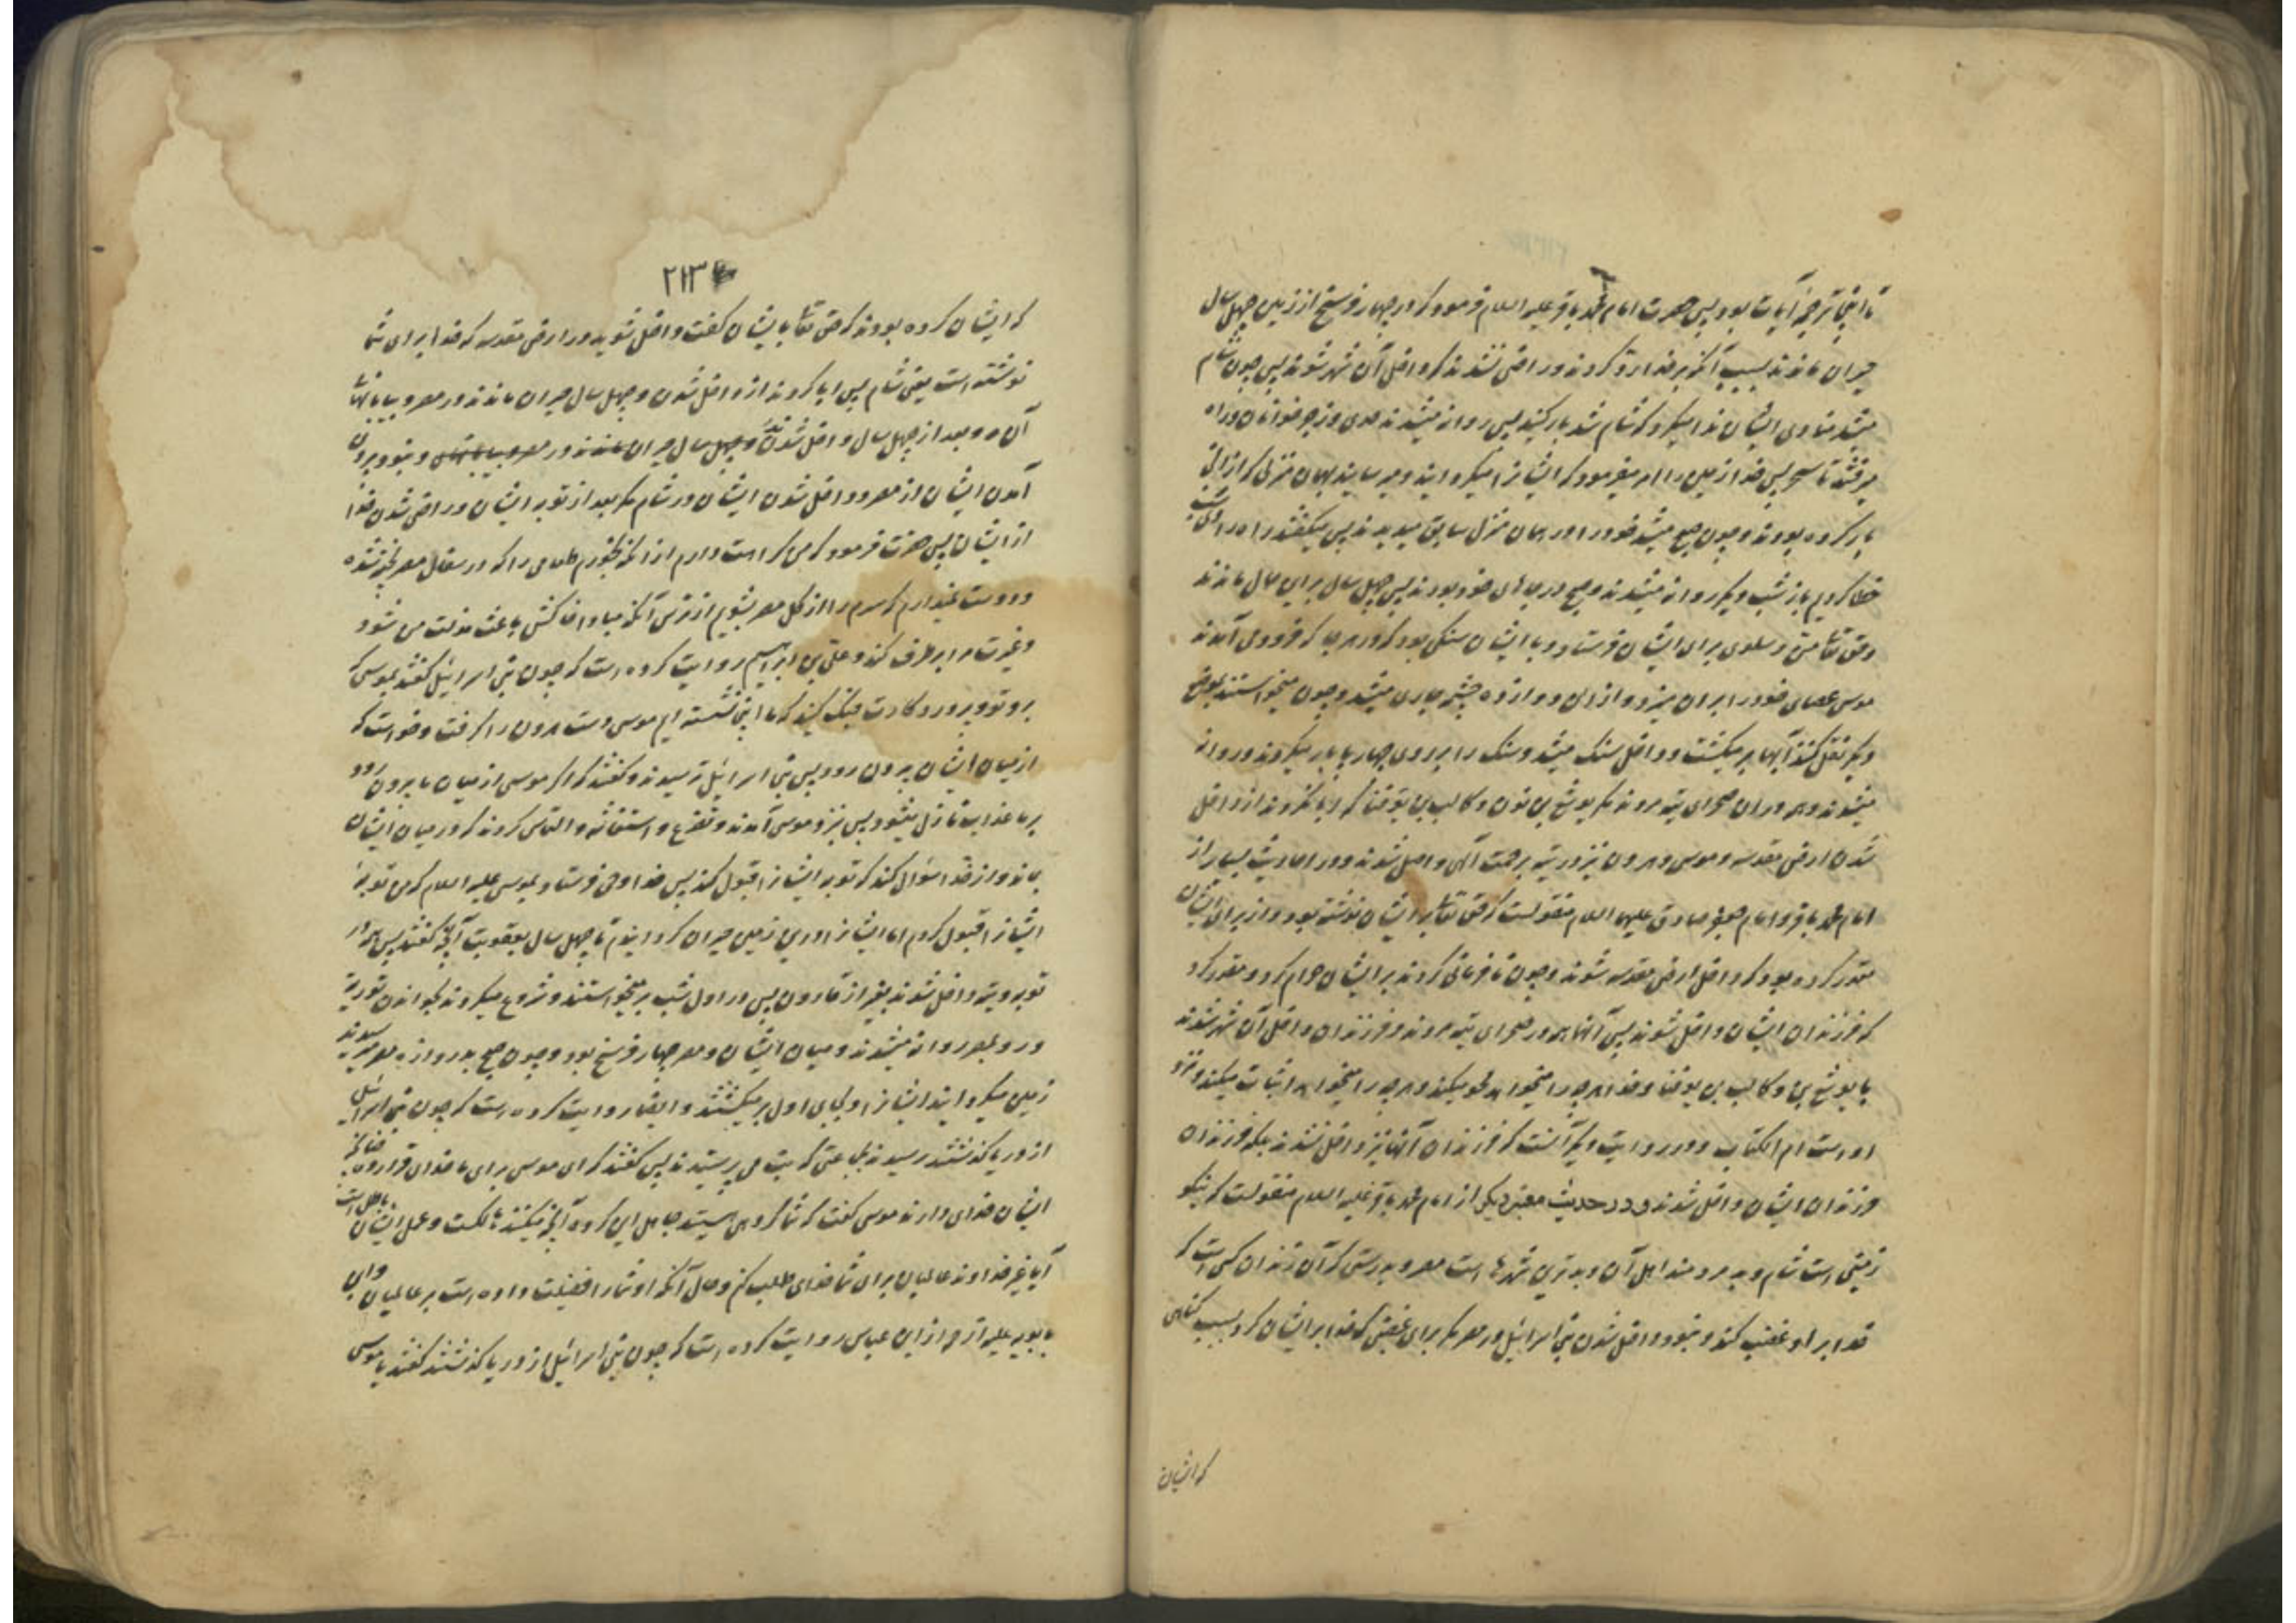 تا اینجا ترجمه آیات بود پس حضرت امام محمد باقر علیه السلام فرمود که در چهار فرسخ از زمین چهل سال
حیران ماندند بسبب آنکه بر خدا رد کردند و راضی نشدند که داخل آن شهر شوند پس چون شام
میشد منادی ایشان ندا میکرد که شام شد بار کنید پس روانه میشدند حدی و زجر خوانان و راه
میرفتند تا سحر پس خدا زمین را امر میفرمود که ایشانرا میگردانید و میرسانید بهمان منزلی که از آنجا
بار کرده بودند و چون صبح میشد خود را در همان منزل سابق میدیدند پس میگفتند راه را امشب
خطا کردیم باز شب دیگر روانه میشدند و صبح در جای خود بودند پس چهل سال براین حال ماندند
و حق تعا من و سلوی برای ایشان فرستاد و با ایشان سنگی بود که در هر جا که فرود می آمدند
موسی عصای خود را بر آن میزد و از آن دوازده چشمه جاری میشد و چون میخواستند بموضع
دیگر نقل کنند آبها بر میگشت و داخل سنگ میشد و سنگ را بر روی چهارپا بار میکردند و روانه
میشدند و همه در آن صحرای تیه مردند مگر یوشع بن نون و کالب بن یوقنا که ابا نکردند از داخل
شدن ارض مقدسه و موسی و هرون نیز در تیه برحمت الهی واصل شدند و در احادیث بسیار از
امام محمد باقر و امام جعفر صادق علیهما السلام منقولست که حق تعا بر ایشان نوشته بود و از برای ایشان
مقدر کرده بود که داخل ارض مقدسه شوند و چون نافرمانی کردند بر ایشان حرام کرد و مقدر کرد
که فرزندان ایشان داخل شوند پس آنها همه در صحرای تیه مردند و فرزندان داخل آن شهر شدند
با یوشع بن و کالب بن یوقنا و خدا هرچه را میخواهد محو میکند و هرچه را میخواهد اثبات میکند و نزد
اوست ام الکتاب و در روایت دیگر آنست که فرزندان آنها نیز داخل نشدند بلکه فرزندان
فرزندان ایشان داخل شدند و در حدیث معتبر دیگر از امام محمد باقر علیه السلام منقولست که نیکو
زمینی است شام و بد مردمند اهل آن و بدترین شهرها است مصر و بدرستی که آن زندان کسی است که
خدا بر او غضب کند و نبود داخل شدن بنی اسرائیل در مصر مگر برای غضبی که خدا بر ایشان کرد بسبب گناهی
که ایشان
۲۱۳
که ایشان کرده بودند که حق تعا بایشان گفت داخل شوید در ارض مقدسه که خدا برای شما
نوشته است یعنی شام پس ابا کردند از داخل شدن و چهل سال حیران ماندند در مصر و بیابانهای
آن و بعد از چهل سال داخل شدند و چهل سال حیران ماندند در مصر و بیابانهای و نبود بیرون
آمدن ایشان از مصر و داخل شدن ایشان در شام مگر بعد از توبه ایشان و راضی شدن خدا
از ایشان پس حضرت فرمود که من کراهت دارم از آنکه بخورم طعامی را که در سفال مصر پخته شده
و دوست نمیدارم که سرم را از گل مصر بشویم از ترس آنکه مبادا خاکش باعث مذلت من شود
و غیرت مرا بر طرف کند و علی بن ابراهیم روایت کرده است که چون بنی اسرائیل گفتند بموسی که
برو تو و پروردگارت جنگ کنید که ما اینجا نشسته ایم موسی دست هرون را گرفت و خواست که
از میان ایشان بیرون رود پس بنی اسرائیل ترسیدند و گفتند که اگر موسی از میان ما بیرون رود
بر ما عذاب نازل میشود پس نزد موسی آمدند و تضرع و استغاثه و التماس کردند که در میان ایشان
بماند و از خدا سؤال کند که توبه ایشانرا قبول کند پس خدا وحی فرستاد بموسی علیه السلام که من توبهٔ
ایشانرا قبول کردم اما ایشانرا در این زمین حیران گردانیدم تا چهل سال بعقوبت آنچه گفتند پس همه در
توبه و تیه داخل شدند بغیر از قارون پس در اول شب بر میخواستند و شروع میکردند بخواندن توریة
و رو بمصر روانه میشدند و میان ایشان و مصر چهار فرسخ بود و چون صبح بدروازه مصر میرسیدند
زمین میگردانید ایشانرا و بجای اول بر میگشتند و ایضا روایت کرده است که چون بنی اسرائیل
از دریا گذشتند رسیدند بجماعتی که بت می پرستیدند پس گفتند که ای موسی برای ما خدائی قرار ده چنانکه
ایشان خدای دارند موسی گفت که شما گروهی هستید جاهل این گروه آنچه میکنند هالکست و عمل ایشان باطل است
آیا بغیر خداوند عالمیان برای شما خدای طلب کنم و حال آنکه او شما را فضیلت داده است بر عالمیان و ابن
بابویه علیه الرحمه از ابن عباس روایت کرده است که چون بنی اسرائیل از دریا گذشتند گفتند یا موسی